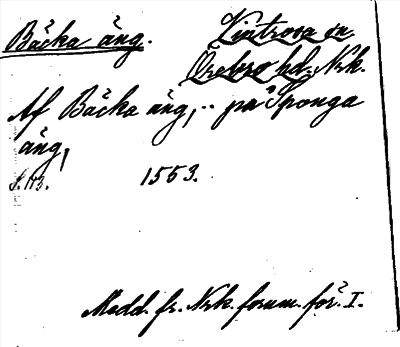 Bäcka äng. Vintrosa sn
Örebro hd, Nrk.
Af Bäcka äng, .. på Sponga
äng,
S. 113. 1553.
Medd. fr. Nrk. fornm. för. I.